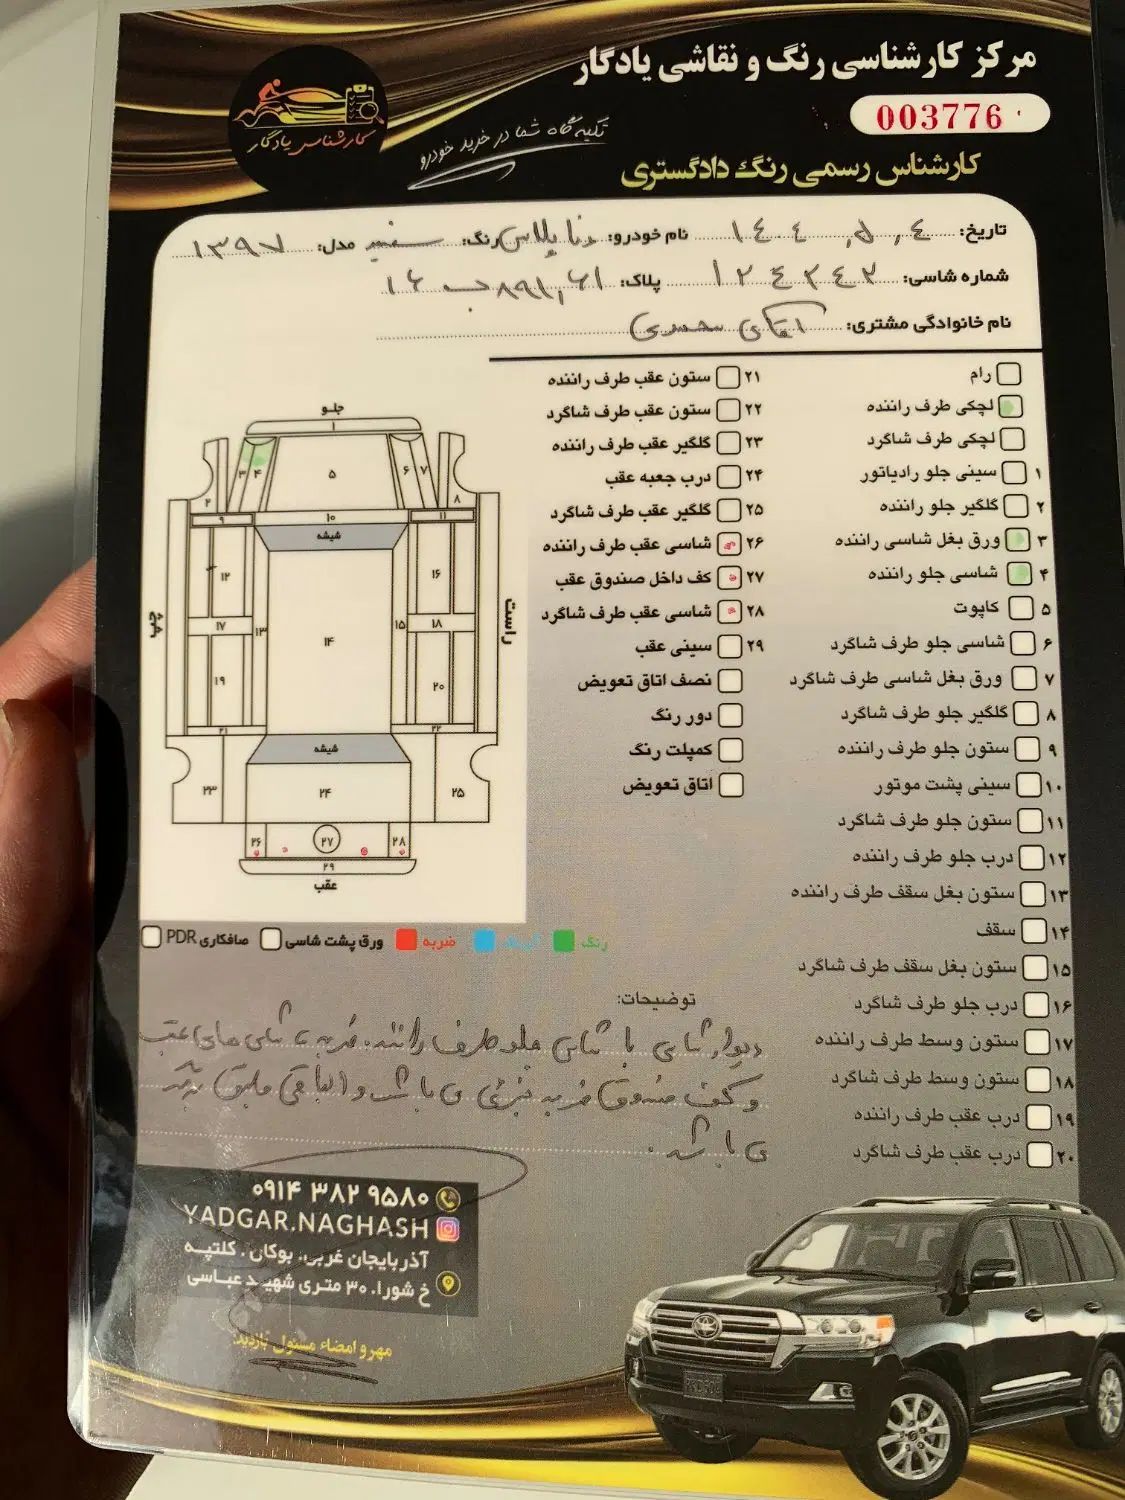 مرکز کارشناسی رنگ و نقاشی یادگار
003776
کارشناسی یادگار
تکیه گاه شما در خرید خودرو
کارشناس رسمی رنگ دادگستری
تاریخ: ١٤٠٤,٥,٤ نام خودرو: دنا پلاس رنگ: سفید مدل: ۱۳۹۷
شماره شاسی: ۱۲٤۲٤۲ پلاک:
نام خانوادگی مشتری: آقای
رام
لچکی طرف راننده
لچکی طرف شاگرد
۱ سینی جلو رادیاتور
۲ گلگیر جلو راننده
۳ ورق بغل شاسی راننده
۴ شاسی جلو راننده
۵ کاپوت
۶ شاسی جلو طرف شاگرد
۷ ورق بغل شاسی طرف شاگرد
۸ گلگیر جلو طرف شاگرد
۹ ستون جلو طرف راننده
۱۰ سینی پشت موتور
۱۱ ستون جلو طرف شاگرد
۱۲ درب جلو طرف راننده
۱۳ ستون بغل سقف طرف راننده
۱۴ سقف
۱۵ ستون بغل سقف طرف شاگرد
۱۶ درب جلو طرف شاگرد
۱۷ ستون وسط طرف راننده
۱۸ ستون وسط طرف شاگرد
۱۹ درب عقب طرف راننده
۲۰ درب عقب طرف شاگرد
۲۱ ستون عقب طرف راننده
۲۲ ستون عقب طرف شاگرد
۲۳ گلگیر عقب طرف راننده
۲۴ درب جعبه عقب
۲۵ گلگیر عقب طرف شاگرد
۲۶ شاسی عقب طرف راننده
۲۷ کف داخل صندوق عقب
۲۸ شاسی عقب طرف شاگرد
۲۹ سینی عقب
نصف اتاق تعویض
دور رنگ
کمپلت رنگ
اتاق تعویض
جلو
۱
۲ ۳ ۴ ۵ ۶ ۷ ۸
۹ ۱۰ ۱۱
شیشه
۱۲ ۱۶
چپ ۱۷ ۱۳ ۱۴ ۱۵ ۱۸ راست
۱۹ ۲۰
۲۱ ۲۲
شیشه
۲۳ ۲۴ ۲۵
۲۶ ۲۷ ۲۸
۲۹
عقب
رنگ ضربه ورق پشت شاسی صافکاری PDR
توضیحات:
دیوار شاسی با شاسی جلو طرف راننده. ضربه شاسی های عقب
و کف صندوق ضربه جزئی می باشد و الباقی مطابق
می باشد.
۰۹۱۴ ۳۸۲ ۹۵۸۰
YADGAR.NAGHASH
آذربایجان غربی، بوکان، کلتپه
خ شورا، ۳۰ متری شهید عباسی
مهر و امضاء مسئول بازدید: